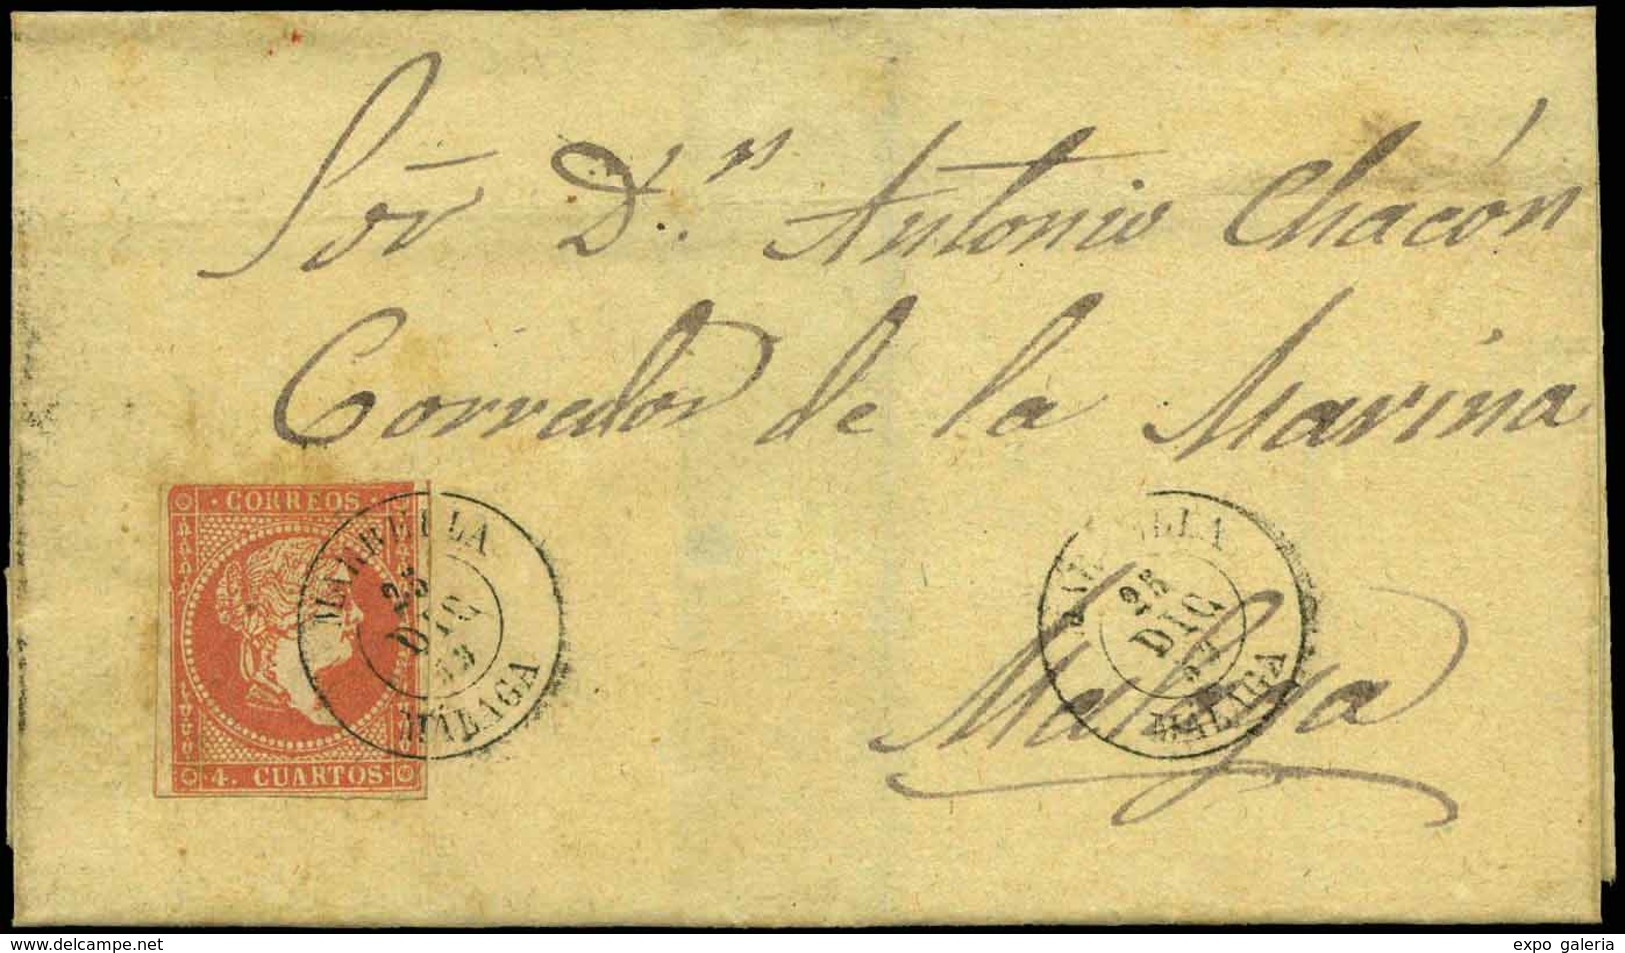 Sõr D.n Antonio Chacón
Corredor de la Marina
Malaga
· CORREOS ·
· 4. CUARTOS ·
MARBELLA
25
DIC
MÁLAGA
MARBELLA
25
DIC
57
MALAGA
delcampe.net
expo galeria